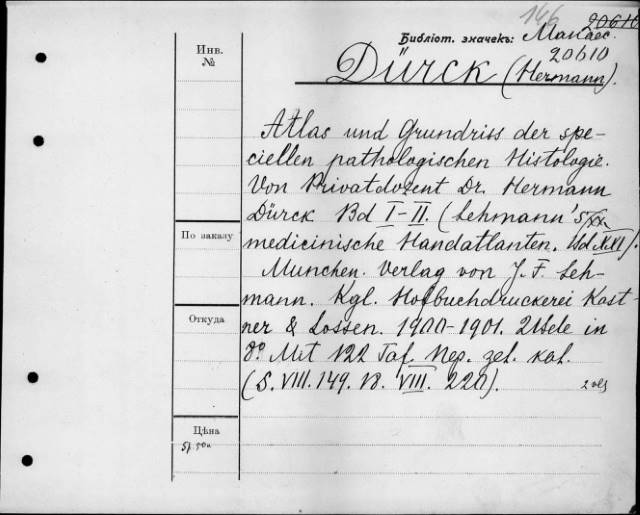 146 20610
Библіот. значекъ: Макаес.
20610
Dürck (Hermann).
Инв.
№
Atlas und Grundriss der spe-
ciellen pathologischen Histologie.
Von Privatdozent Dr. Hermann
Dürck Bd I-II. (Lehmann's
medicinische Handatlanten. Bd
По заказу
München. Verlag von J. F. Leh-
mann. Kgl. Hofbuchdruckerei Kast
Откуда
ner & Lossen. 1900-1901. in
8° Mit 122 Taf.
(S. VIII. 149. VIII. 220).
Цѣна